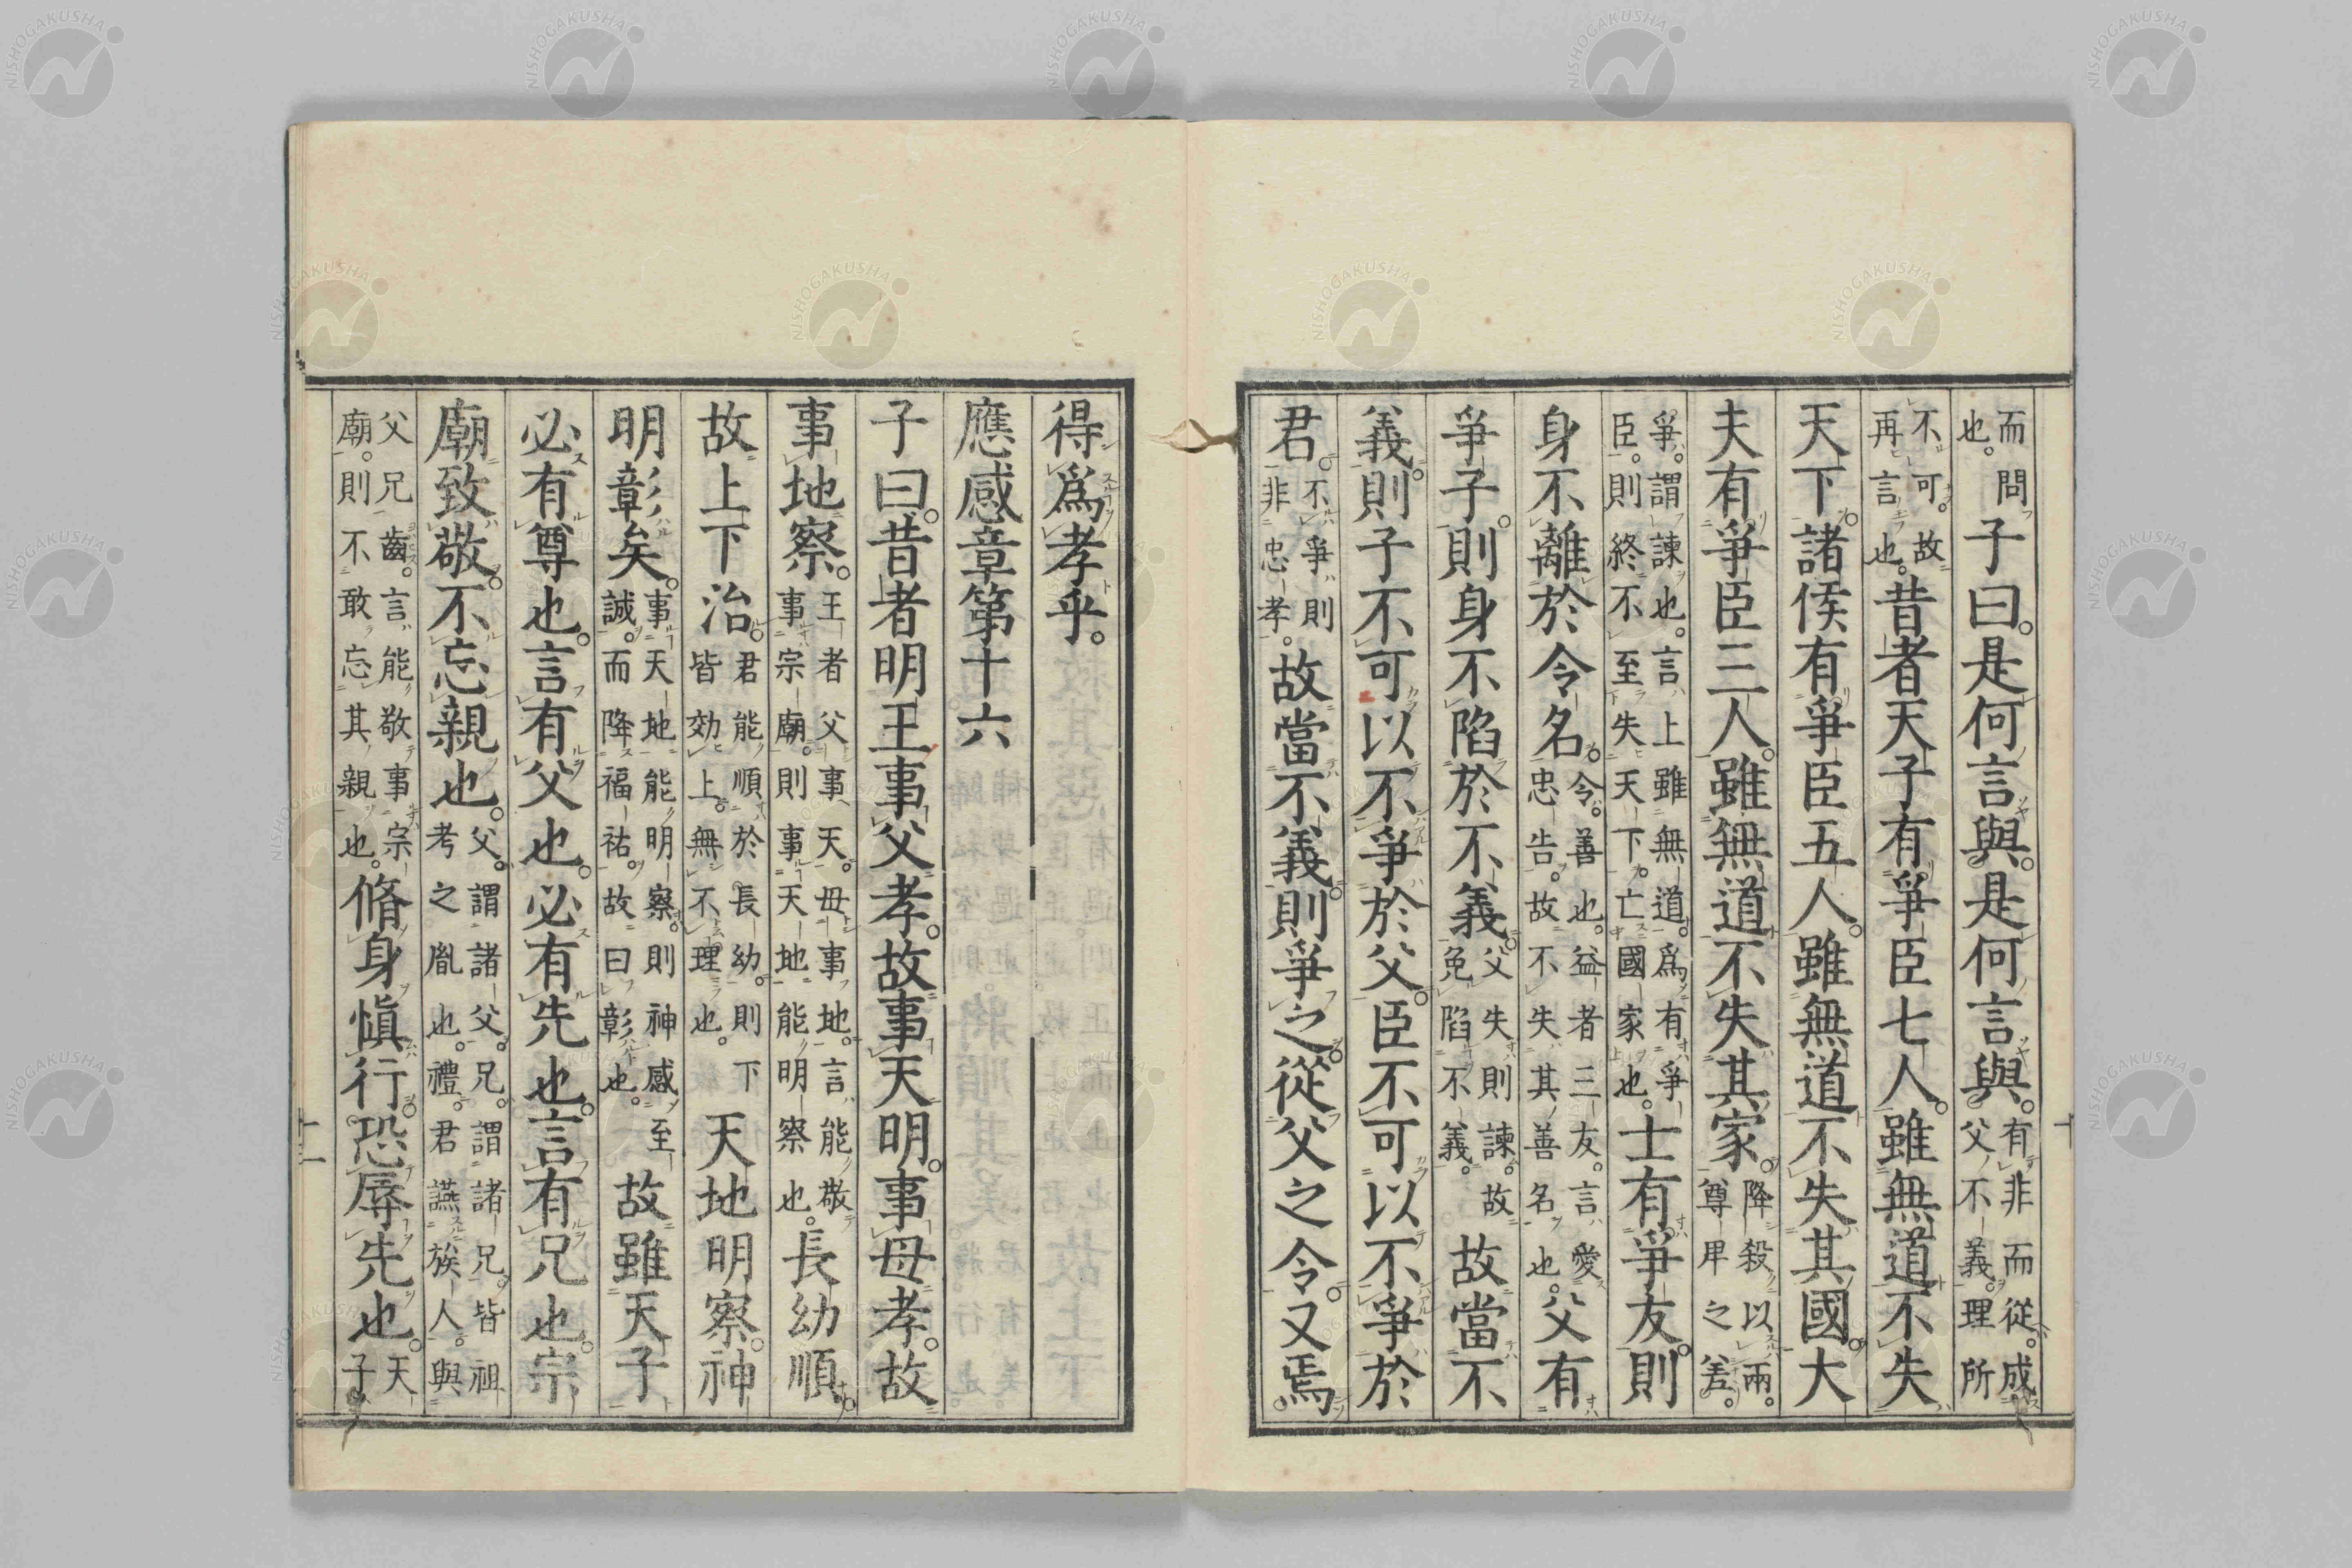 而問也。子曰。是何言與。是何言與。有非而從。成父不義。理所
不可。故再言也。昔者天子有爭臣七人。雖無道不失
天下。諸侯有爭臣五人。雖無道不失其國。大
夫有爭臣三人。雖無道不失其家。降殺以兩。尊卑之差。
爭。謂諫也。言上雖無道。爲有爭臣。則終不至失天下。亡國家也。士有爭友。則
身不離於令名。令。善也。益者三友。言愛忠告。故不失其善名也。父有
爭子。則身不陷於不義。父失則諫。故免陷不義。故當不
義。則子不可以不爭於父。臣不可以不爭於
君。不爭則非忠孝。故當不義。則爭之。從父之令。又焉
得爲孝乎。
應感章第十六
子曰。昔者明王事父孝。故事天明。事母孝。故
事地察。王者父事天。母事地。言能敬事宗廟。則事天地能明察也。長幼順。
故上下治。君能順於長幼。則下皆効上。無不理也。天地明察。神
明彰矣。事天地能明察。則神感至誠。而降福祐。故曰彰也。故雖天子
必有尊也。言有父也。必有先也。言有兄也。宗
廟致敬。不忘親也。父。謂諸父。兄。謂諸兄。皆祖考之胤也。禮。君讌族人。與
父兄齒。言能敬事宗廟。則不敢忘其親也。脩身愼行。恐辱先也。天子
十
十一
NISHOGAKUSHA